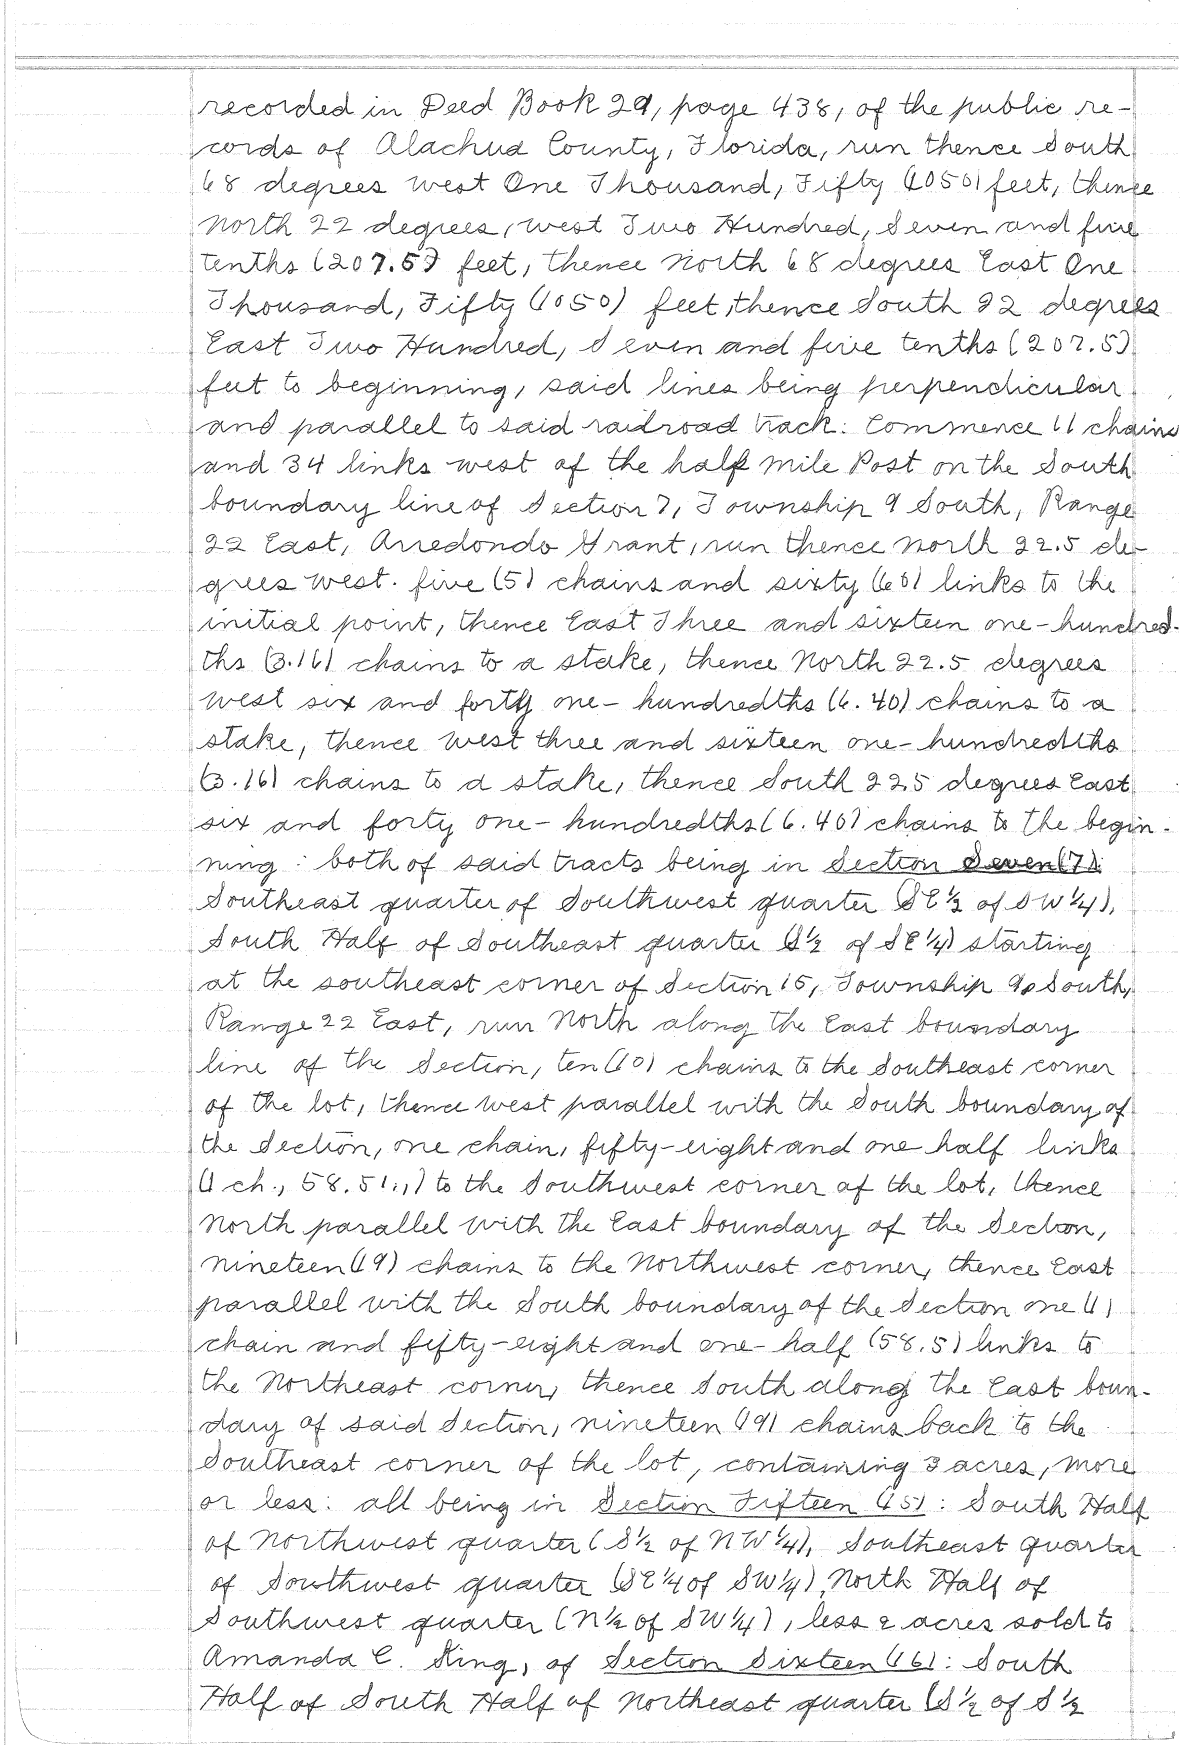 recorded in Deed Book 29, page 438, of the public re-
cords of Alachua County, Florida, run thence South
68 degrees west One Thousand, Fifty (1050) feet, thence
North 22 degrees, west Two Hundred, Seven and five
tenths (207.5) feet, thence North 68 degrees East One
Thousand, Fifty (1050) feet, thence South 22 degrees
East Two Hundred, Seven and five tenths (207.5)
feet to beginning, said lines being perpendicular
and parallel to said railroad track: Commence 11 chains
and 34 links west of the half mile Post on the South
boundary line of Section 7, Township 9 South, Range
22 East, Arredondo Grant, run thence North 22.5 de-
grees west. five (5) chains and sixty (60) links to the
initial point, thence East Three and sixteen one-hundred-
ths (3.16) chains to a stake, thence North 22.5 degrees
west six and forty one-hundredths (6.40) chains to a
stake, thence west three and sixteen one-hundredths
(3.16) chains to a stake, thence South 22.5 degrees East
six and forty one-hundredths (6.40) chains to the begin-
ning: both of said tracts being in Section Seven (7):
Southeast quarter of Southwest quarter (SE 1/2 of SW 1/4),
South Half of Southeast quarter (S 1/2 of SE 1/4) starting
at the southeast corner of Section 15, Township 9, South,
Range 22 East, run North along the East boundary
line of the Section, ten (10) chains to the Southeast corner
of the lot, thence west parallel with the South boundary of
the Section, one chain, fifty-eight and one half links
(1 ch., 58.5 l.,) to the Southwest corner of the lot, thence
North parallel with the East boundary of the Section,
nineteen (19) chains to the Northwest corner, thence East
parallel with the South boundary of the Section one (1)
chain and fifty-eight and one-half (58.5) links to
the Northeast corner, thence South along the East boun-
dary of said Section, nineteen (19) chains back to the
Southeast corner of the lot, containing 3 acres, more
or less: all being in Section Fifteen (15): South Half
of Northwest quarter (S 1/2 of NW 1/4), Southeast quarter
of Southwest quarter (SE 1/4 of SW 1/4), North Half of
Southwest quarter (N 1/2 of SW 1/4), less 2 acres sold to
Amanda C. King, of Section Sixteen (16): South
Half of South Half of Northeast quarter (S 1/2 of S 1/2